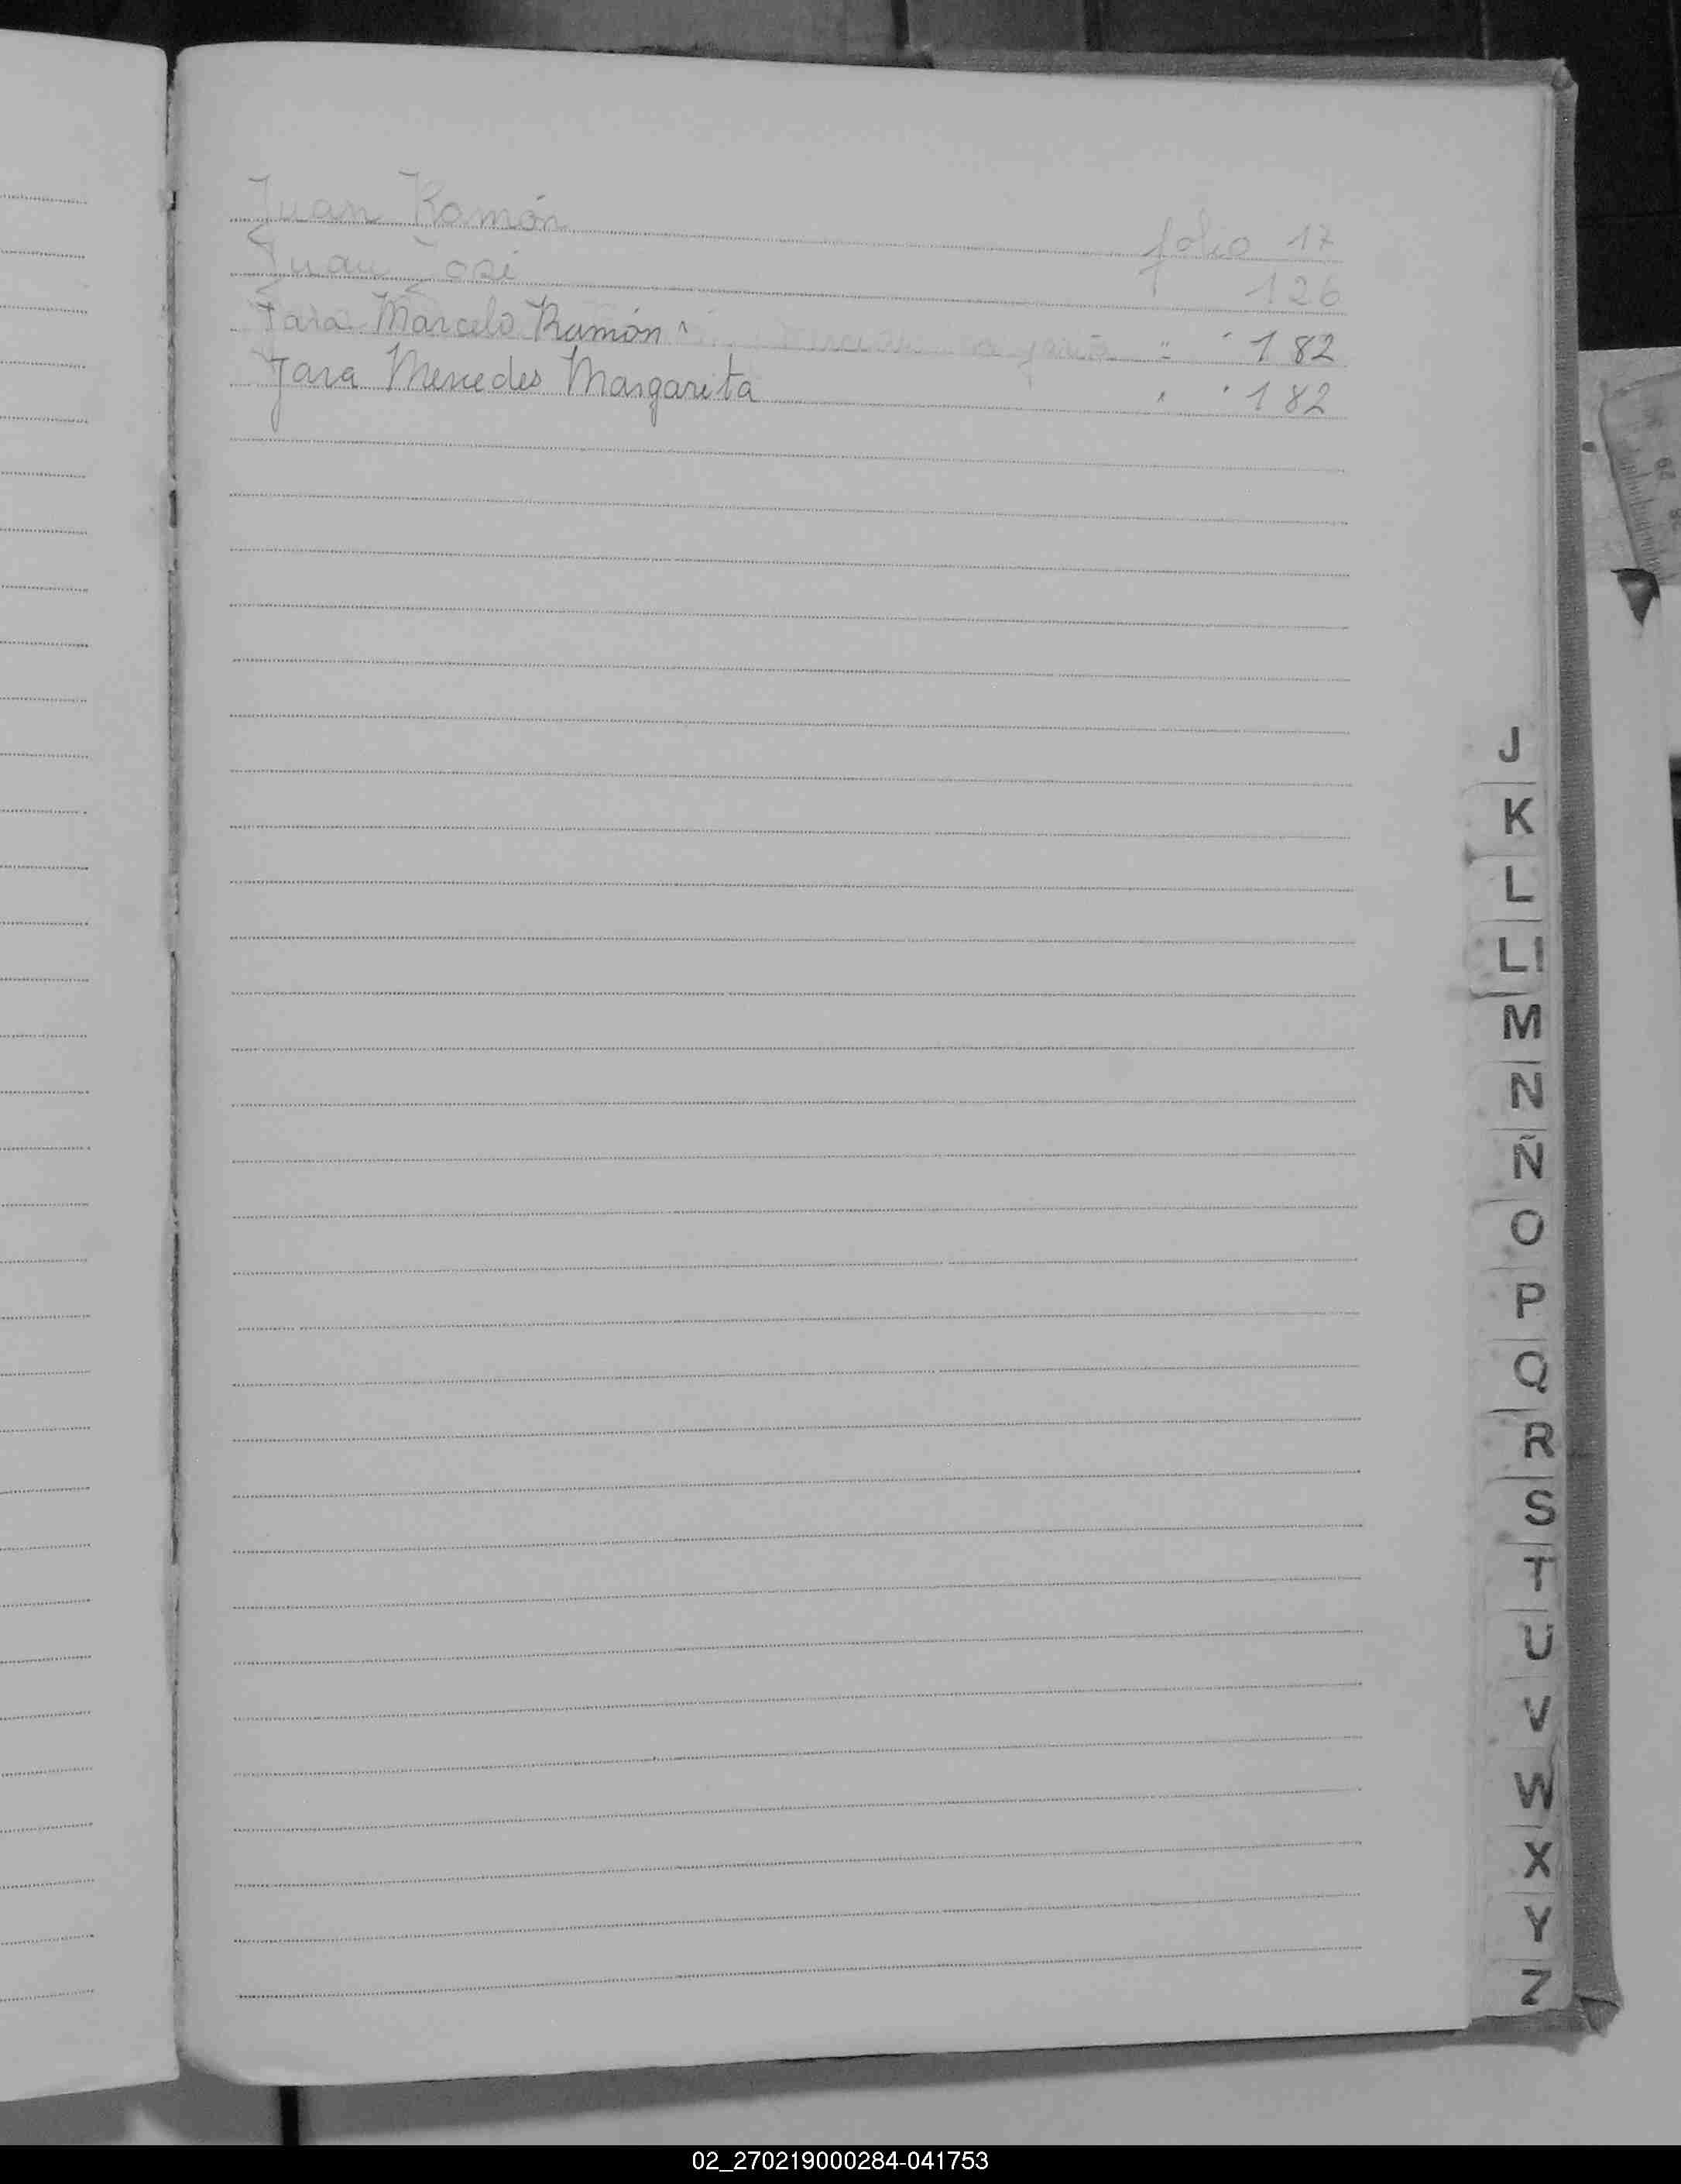 Juan Ramón folio 17
Juan José " 126
Jara Marcelo Ramón " " 182
Jara Mercedes Margarita " " 182
J
K
L
Ll
M
N
Ñ
O
P
Q
R
S
T
U
V
W
X
Y
Z
02_270219000284-041753